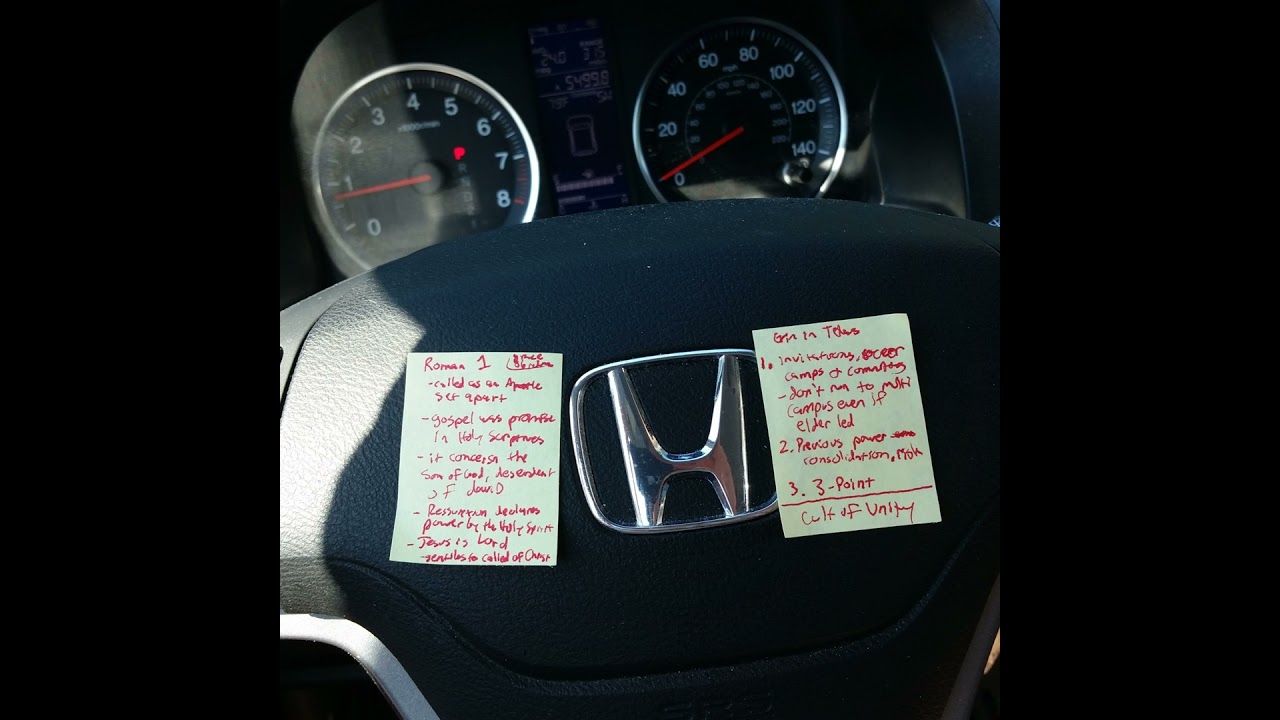 0
1
2
3
4
5
6
7
8
x1000r/min
P
R
N
D
RANGE
24.0 315
54998
0
20
40
60
80
100
120
140
mph
Roman 1
-called as an Apostle
set apart
-gospel was promise
in Holy Scriptures
-it concersn the
Son of God, desendent
of david
- Ressurection declares
power by the Holy Spirit
-Jesus is Lord
called of Christ
in
1. invitations, soccer
camps &
-don't run to multi
campus even if
elder led
2. Previous power
consolidation,
3. 3-Point
Cult of Unity
SRS